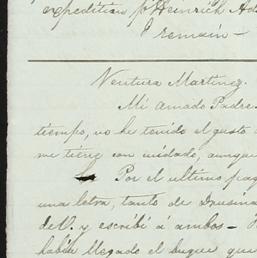 expedition pr Heinrich Ad
I remain —
Ventura Martinez.
Mi Amado Padre
tiempo, no he tenido el gusto d
me tiene con cuidado, aunque
Por el ultimo paq
una letra, tanto de Drusina
de V. y escribí á ambos —
habia llegado el buque que